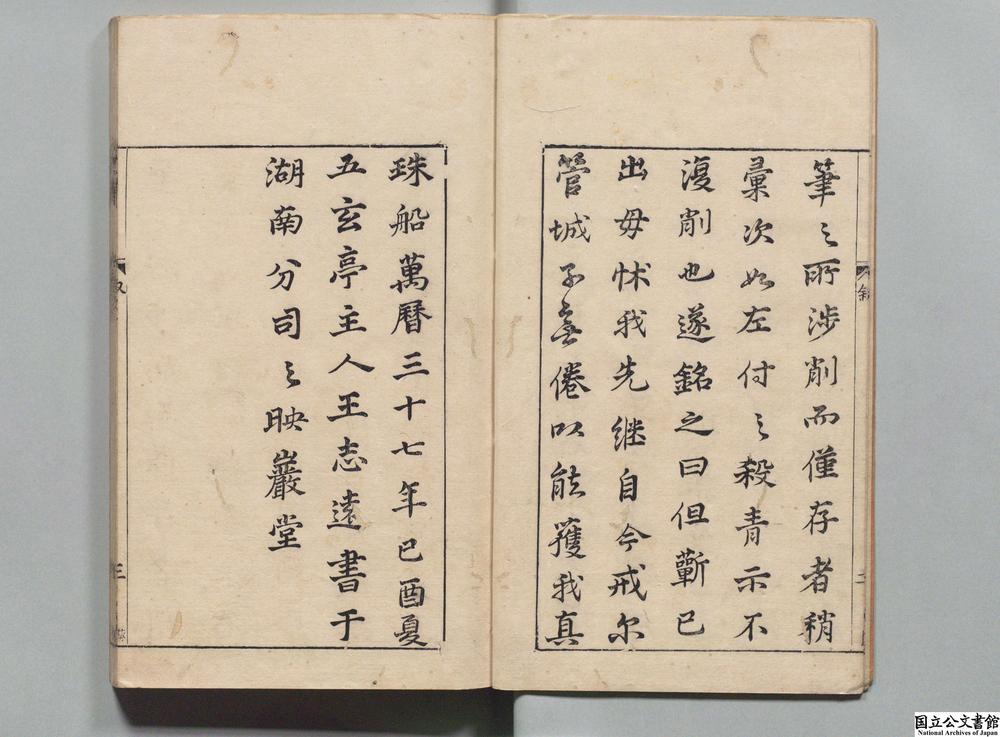 筆之所涉削而僅存者稍
彙次如左付之殺青示不
復削也遂銘之曰但蘄已
出毋怵我先继自今戒尔
管城子無倦以能獲我真
叙
珠船萬曆三十七年己酉夏
五玄亭主人王志遠書于
湖南分司之映巖堂
三
国立公文書館
National Archives of Japan